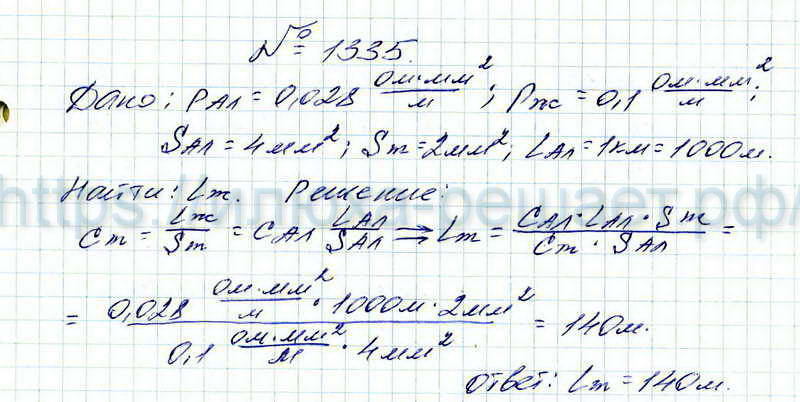 № 1335.
Дано: ρАл = 0,028 Ом·мм²/м; ρж = 0,1 Ом·мм²/м;
SАл = 4мм²; Sж = 2мм²; LАл = 1км = 1000м.
Найти: Lж. Решение:
Cж = Lж/Sж = CАл LАл/SАл → Lж = CАл·LАл·Sж/Cж·SАл =
= 0,028 Ом·мм²/м · 1000м · 2мм² / 0,1 Ом·мм²/м · 4мм² = 140м.
Ответ: Lж = 140м.